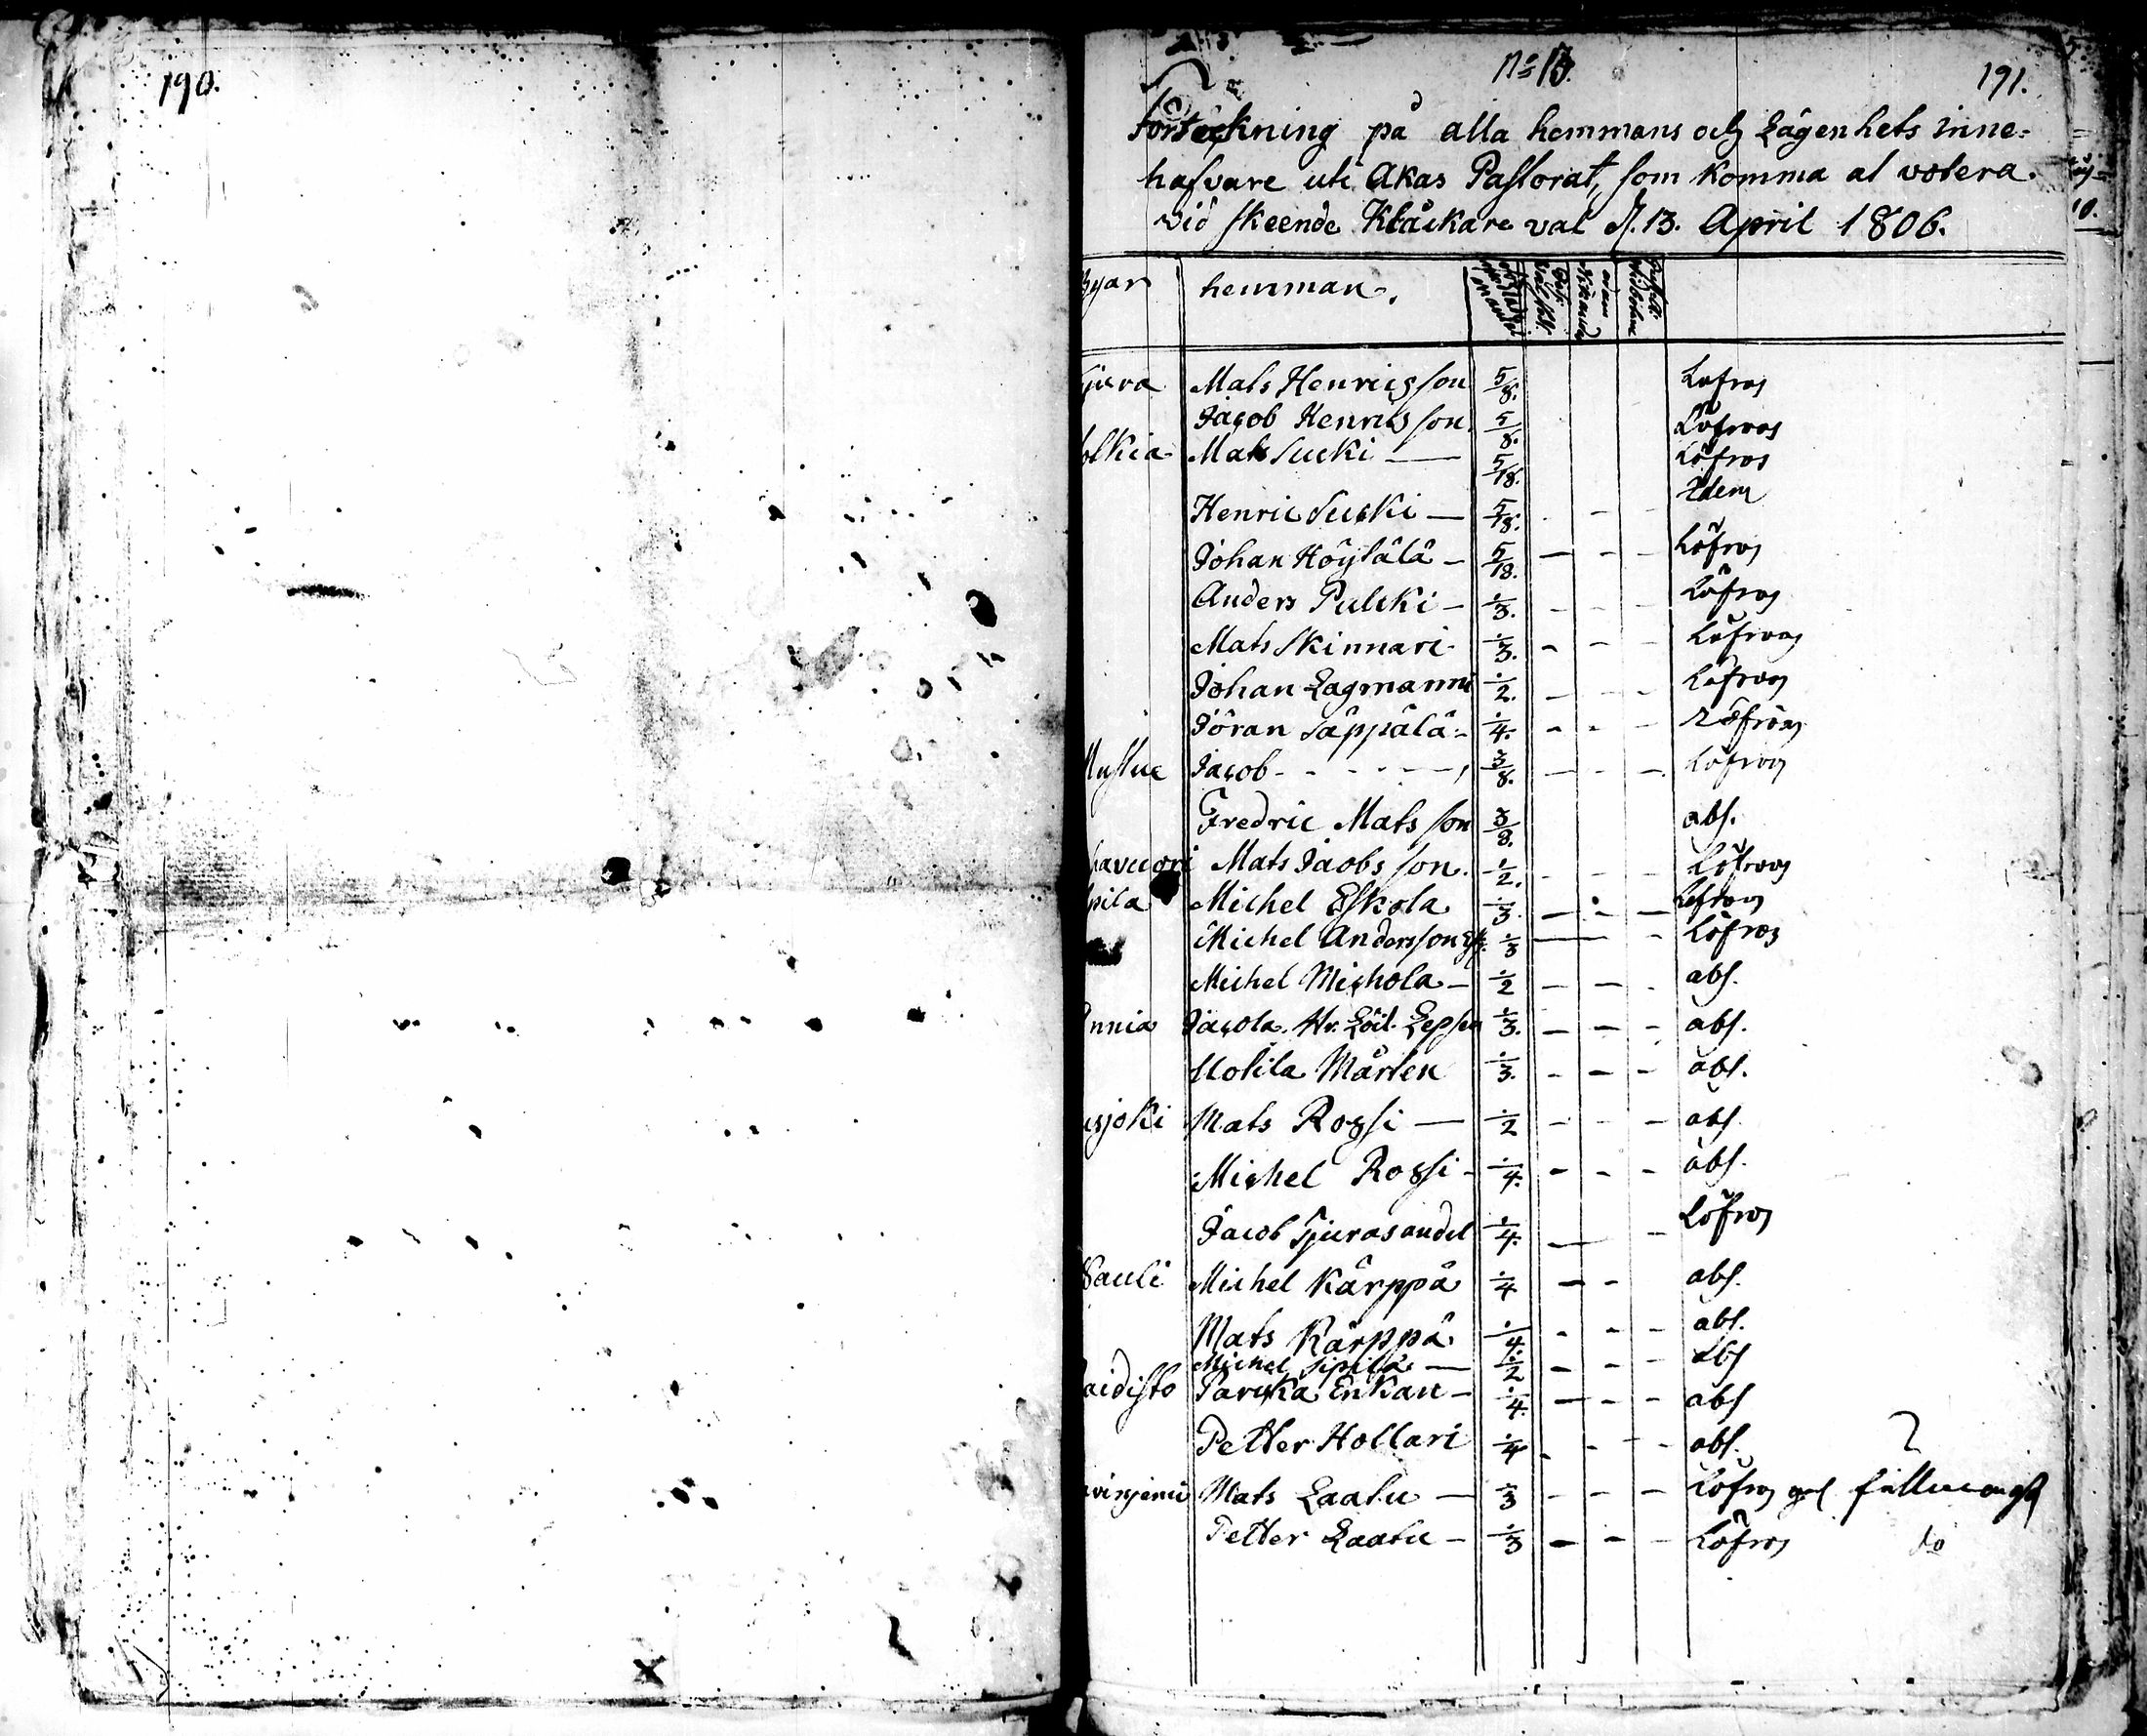 190.
No 13.
191.
Förteckning på alla hemmans och Lägenhets inne-
hafvare uti Akas Pastorat, som komma at votera
vid skeende Klåckare val d. 13. April 1806.
Byar hemman.
Mats Henricsson 5/8. Löfroos
Jacob Henricsson 5/8. Löfroos
Mats Sucki — 5/18. Löfros
Henric Sucki — 5/18. Idem
Johan Höylälä - 5/18. — - - Löfros
Anders Pulcki - 1/3. - - - Löfros
Mats Skinnari 1/3. - - - Löfroos
Johan Lagmanni 1/2. - - - Löfroos
Jöran Säppälä - 1/4. - - - Löfroos
Jacob - - - - - 3/8. — - - Löfroos
Fredric Matsson 3/8. abs.
havuori Mats Jacobsson. 1/2. - - - Löfroos
pila Michel Eskola 1/3. — - — Löfroos
Michel Andersson 1/3 — - Löfros
Michel Michola - 1/2 — — - abs.
nnia Jacola. Hr. Löit. 1/3. — - - abs.
Uotila Mårten 1/3. - - - abs.
usjoki Mats Rossi — 1/2 - - - abs.
Michel Rossi - 1/4. - - - abs.
Jacob andel 1/4. — - Löfros
Sauli Michel Kärppä 1/4 — - abs.
Mats Kärppä. 1/4. - - - abs.
Michel Sipilä — 1/2 - - - abs
aidisto Enkan - 1/4. — - - abs
Petter Hollari 1/4 - - - abs.
Mats Laatu — 1/3 - - - Löfros fullmagt
Petter Laatu - 1/3 — - - Löfros do